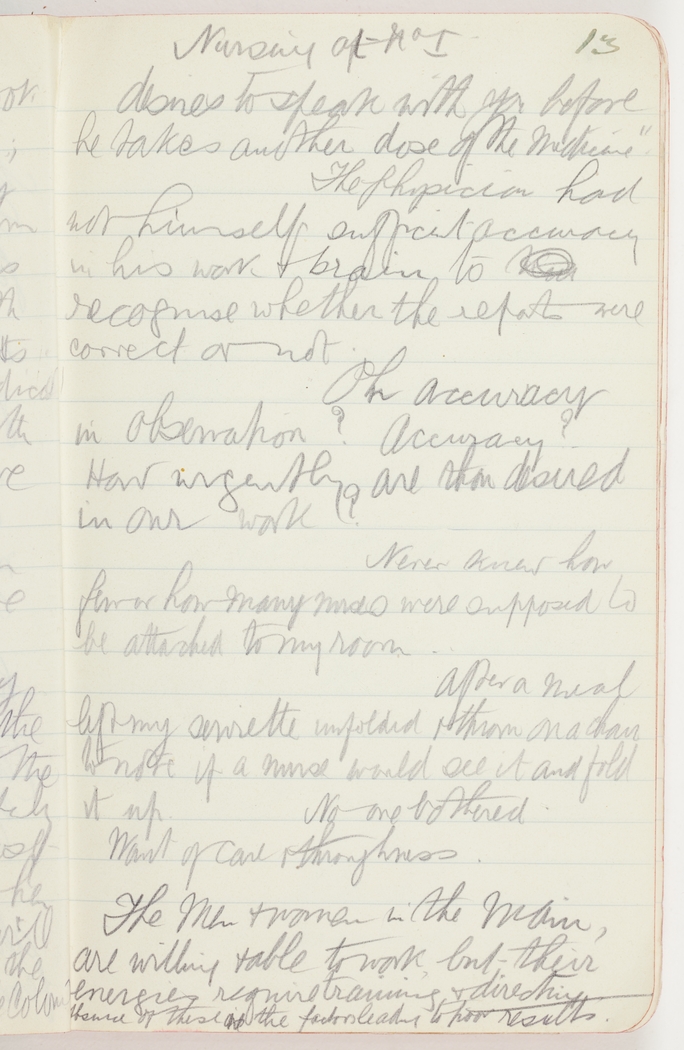 Nursing of No I 13
desires to speak with you before
he takes another dose of the Medicine"
The physician had
not himself sufficient accuracy
in his work & brain to
recognise whether the reports were
correct or not.
Oh accuracy
in observation? Accuracy?
How urgently are thou desired
in our work!?
Never knew how
few or how many nurses were supposed to
be attached to my room.
After a meal
left my serviette unfolded & thrown on a chair
to note if a nurse would see it and fold
it up. No one bothered.
Want of care & thoroughness.
The Men & women in the Main,
are willing & able to work but their
energies require training & direction
absence of these are the factors leading to poor results.